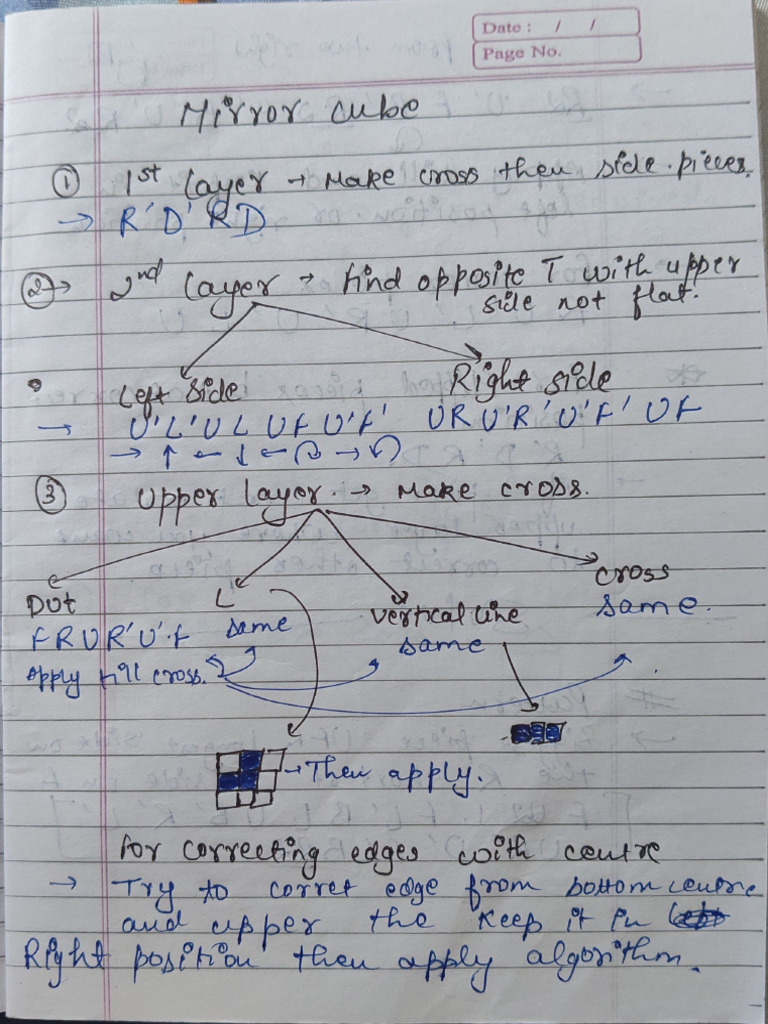 Date : / /
Page No.
Mirror cube
① 1st layer → Make cross then side pieces.
→ R' D' R D
② → 2nd layer → find opposite T with upper
side not flat.
Left side Right side
→ U' L' U L U F U' F' U R U' R' U' F' U F
→ ↑ ← ↓ ← ↷ → ↶
③ Upper layer → Make cross.
Dot L Vertical line cross
F R U R' U' F same same same.
Apply till cross.
→ Then apply.
for correcting edges with centre
→ Try to corret edge from bottom centre
and upper the keep it in
Right position then apply algorithm.